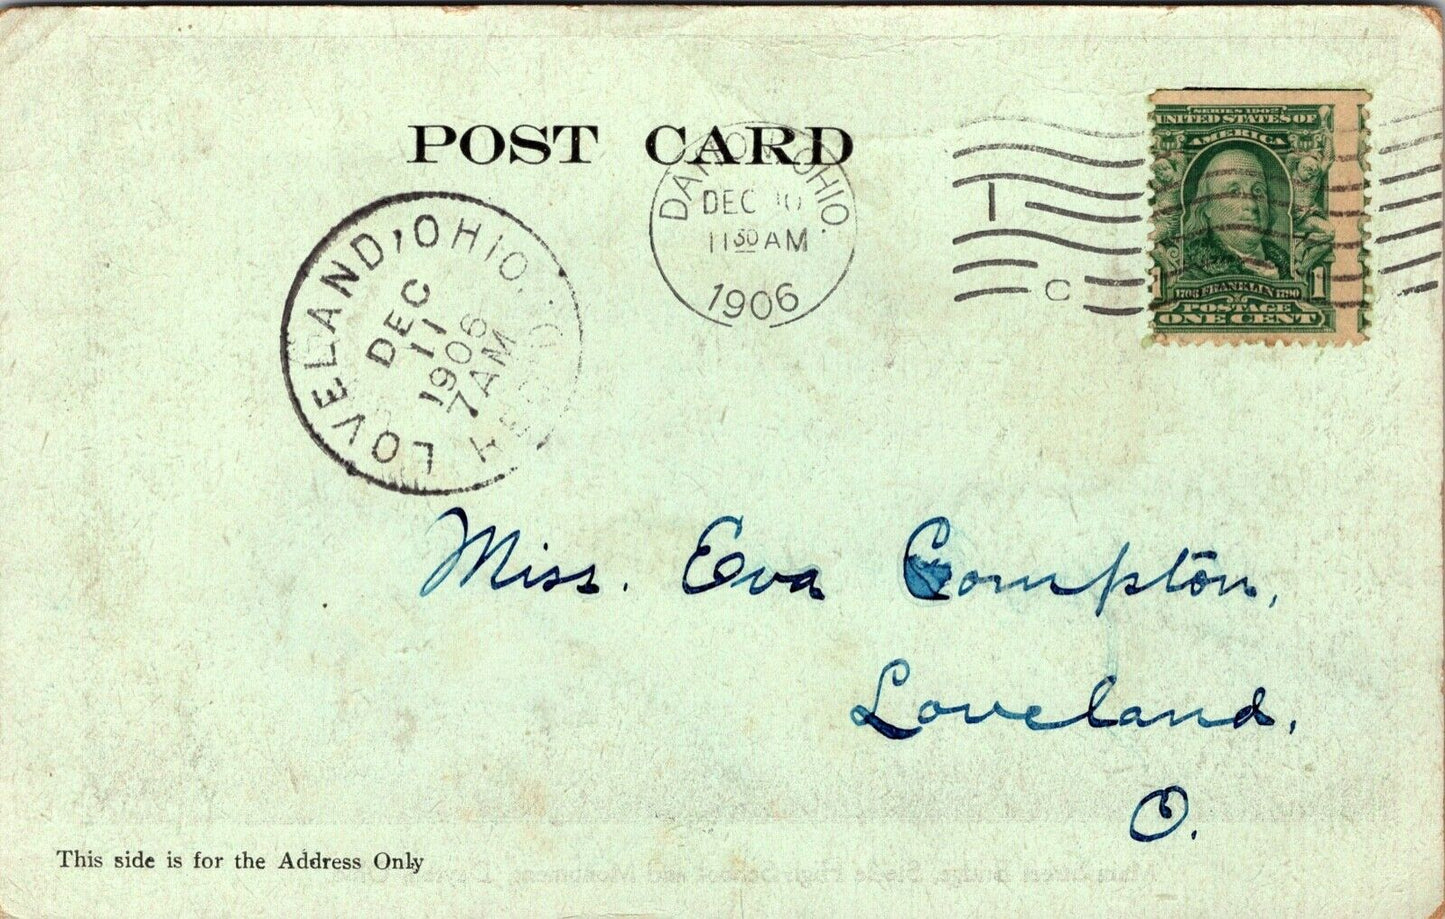 POST CARD
DAYTON, OHIO.
DEC 10
11 30 AM
1906
1
C
SERIES 1902
UNITED STATES OF
AMERICA
1 1
1706 FRANKLIN 1790
POSTAGE
ONE CENT
LOVELAND, OHIO.
DEC
11
1906
7AM
REC'D.
Miss. Eva Compton,
Loveland,
O.
This side is for the Address Only